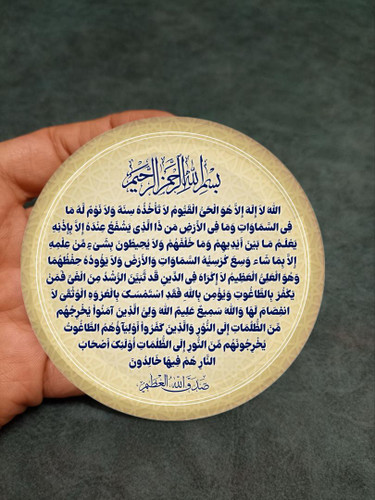 بسم الله الرحمن الرحيم
الله لا إله إلا هو الحي القيوم لا تأخذه سنة ولا نوم له ما
في السماوات وما في الأرض من ذا الذي يشفع عنده إلا بإذنه
يعلم ما بين أيديهم وما خلفهم ولا يحيطون بشيء من علمه
إلا بما شاء وسع كرسيه السماوات والأرض ولا يؤوده حفظهما
وهو العلي العظيم لا إكراه في الدين قد تبين الرشد من الغي فمن
يكفر بالطاغوت ويؤمن بالله فقد استمسك بالعروه الوثقى لا
انفصام لها والله سميع عليم الله ولي الذين آمنوا يخرجهم
من الظلمات إلى النور والذين كفروا أولياؤهم الطاغوت
يخرجونهم من النور إلى الظلمات أولئك أصحاب
النار هم فيها خالدون
صدق الله العظيم